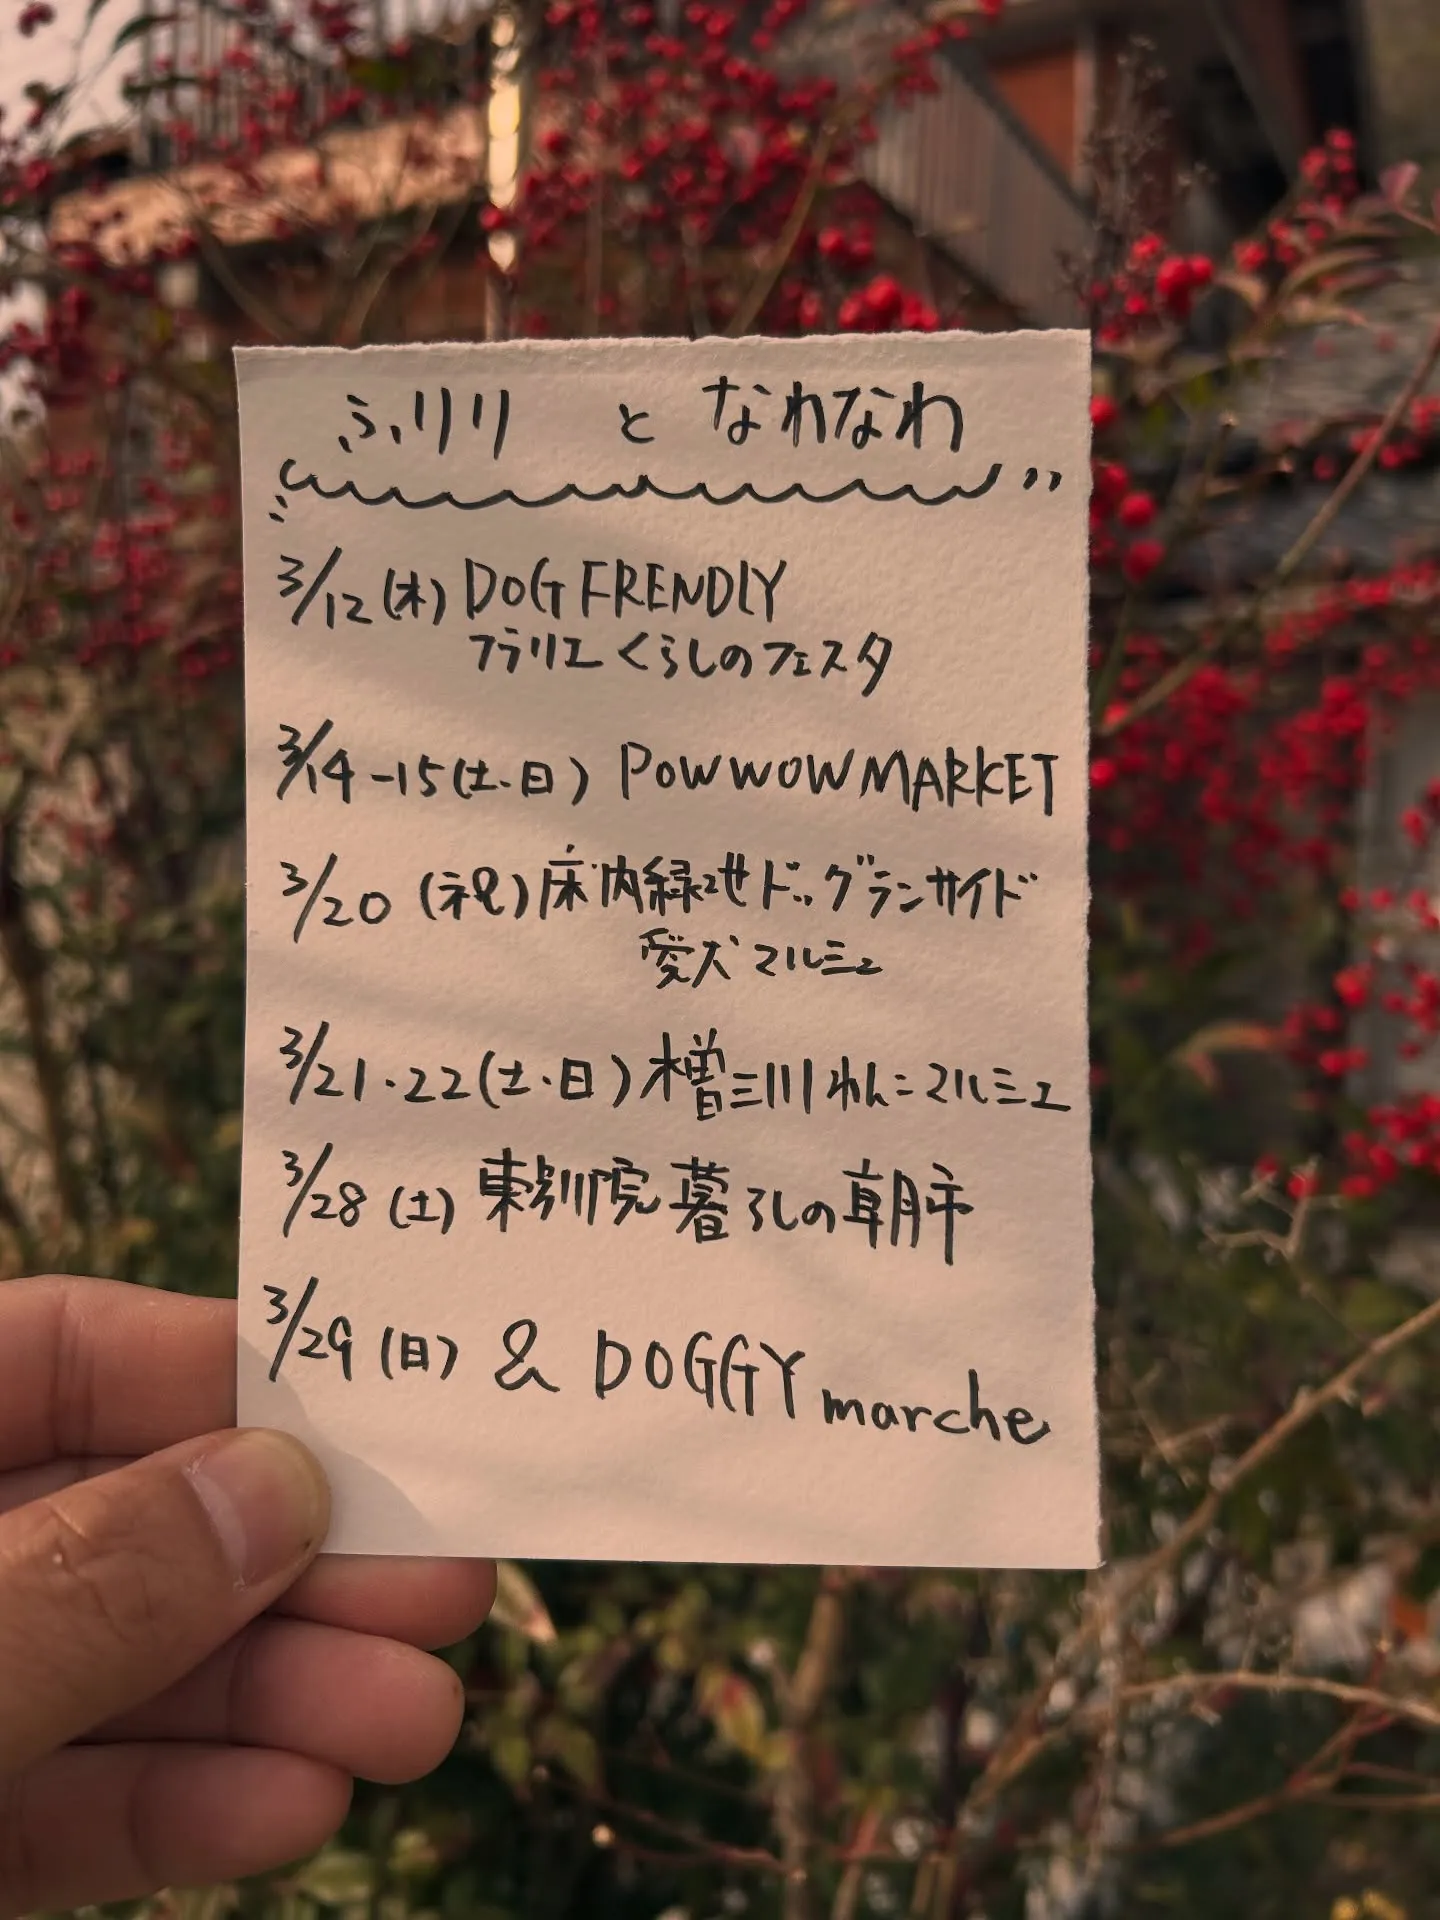 ふりり と なわなわ
3/12(木) DOG FRENDLY
フラリエ くらしのフェスタ
3/14-15(土・日) POWWOW MARKET
3/20 (祝) 庄内緑地ドッグランサイド
愛犬マルシェ
3/21・22(土・日) 木曽三川わんこマルシェ
3/28 (土) 東別院 暮らしの朝市
3/29 (日) & DOGGY marche